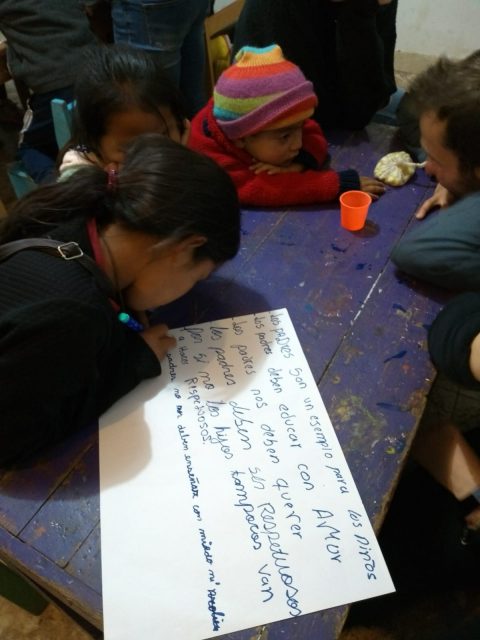 los PADRES son un ejemplo para los niños
los padres deben educar con AMOR
los padres nos deben querer
los padres deben ser Respeduosos
Por si no los hijos tampocos van
a hacer Respeduosos.
padres no nos deben enseñar con miedo ni